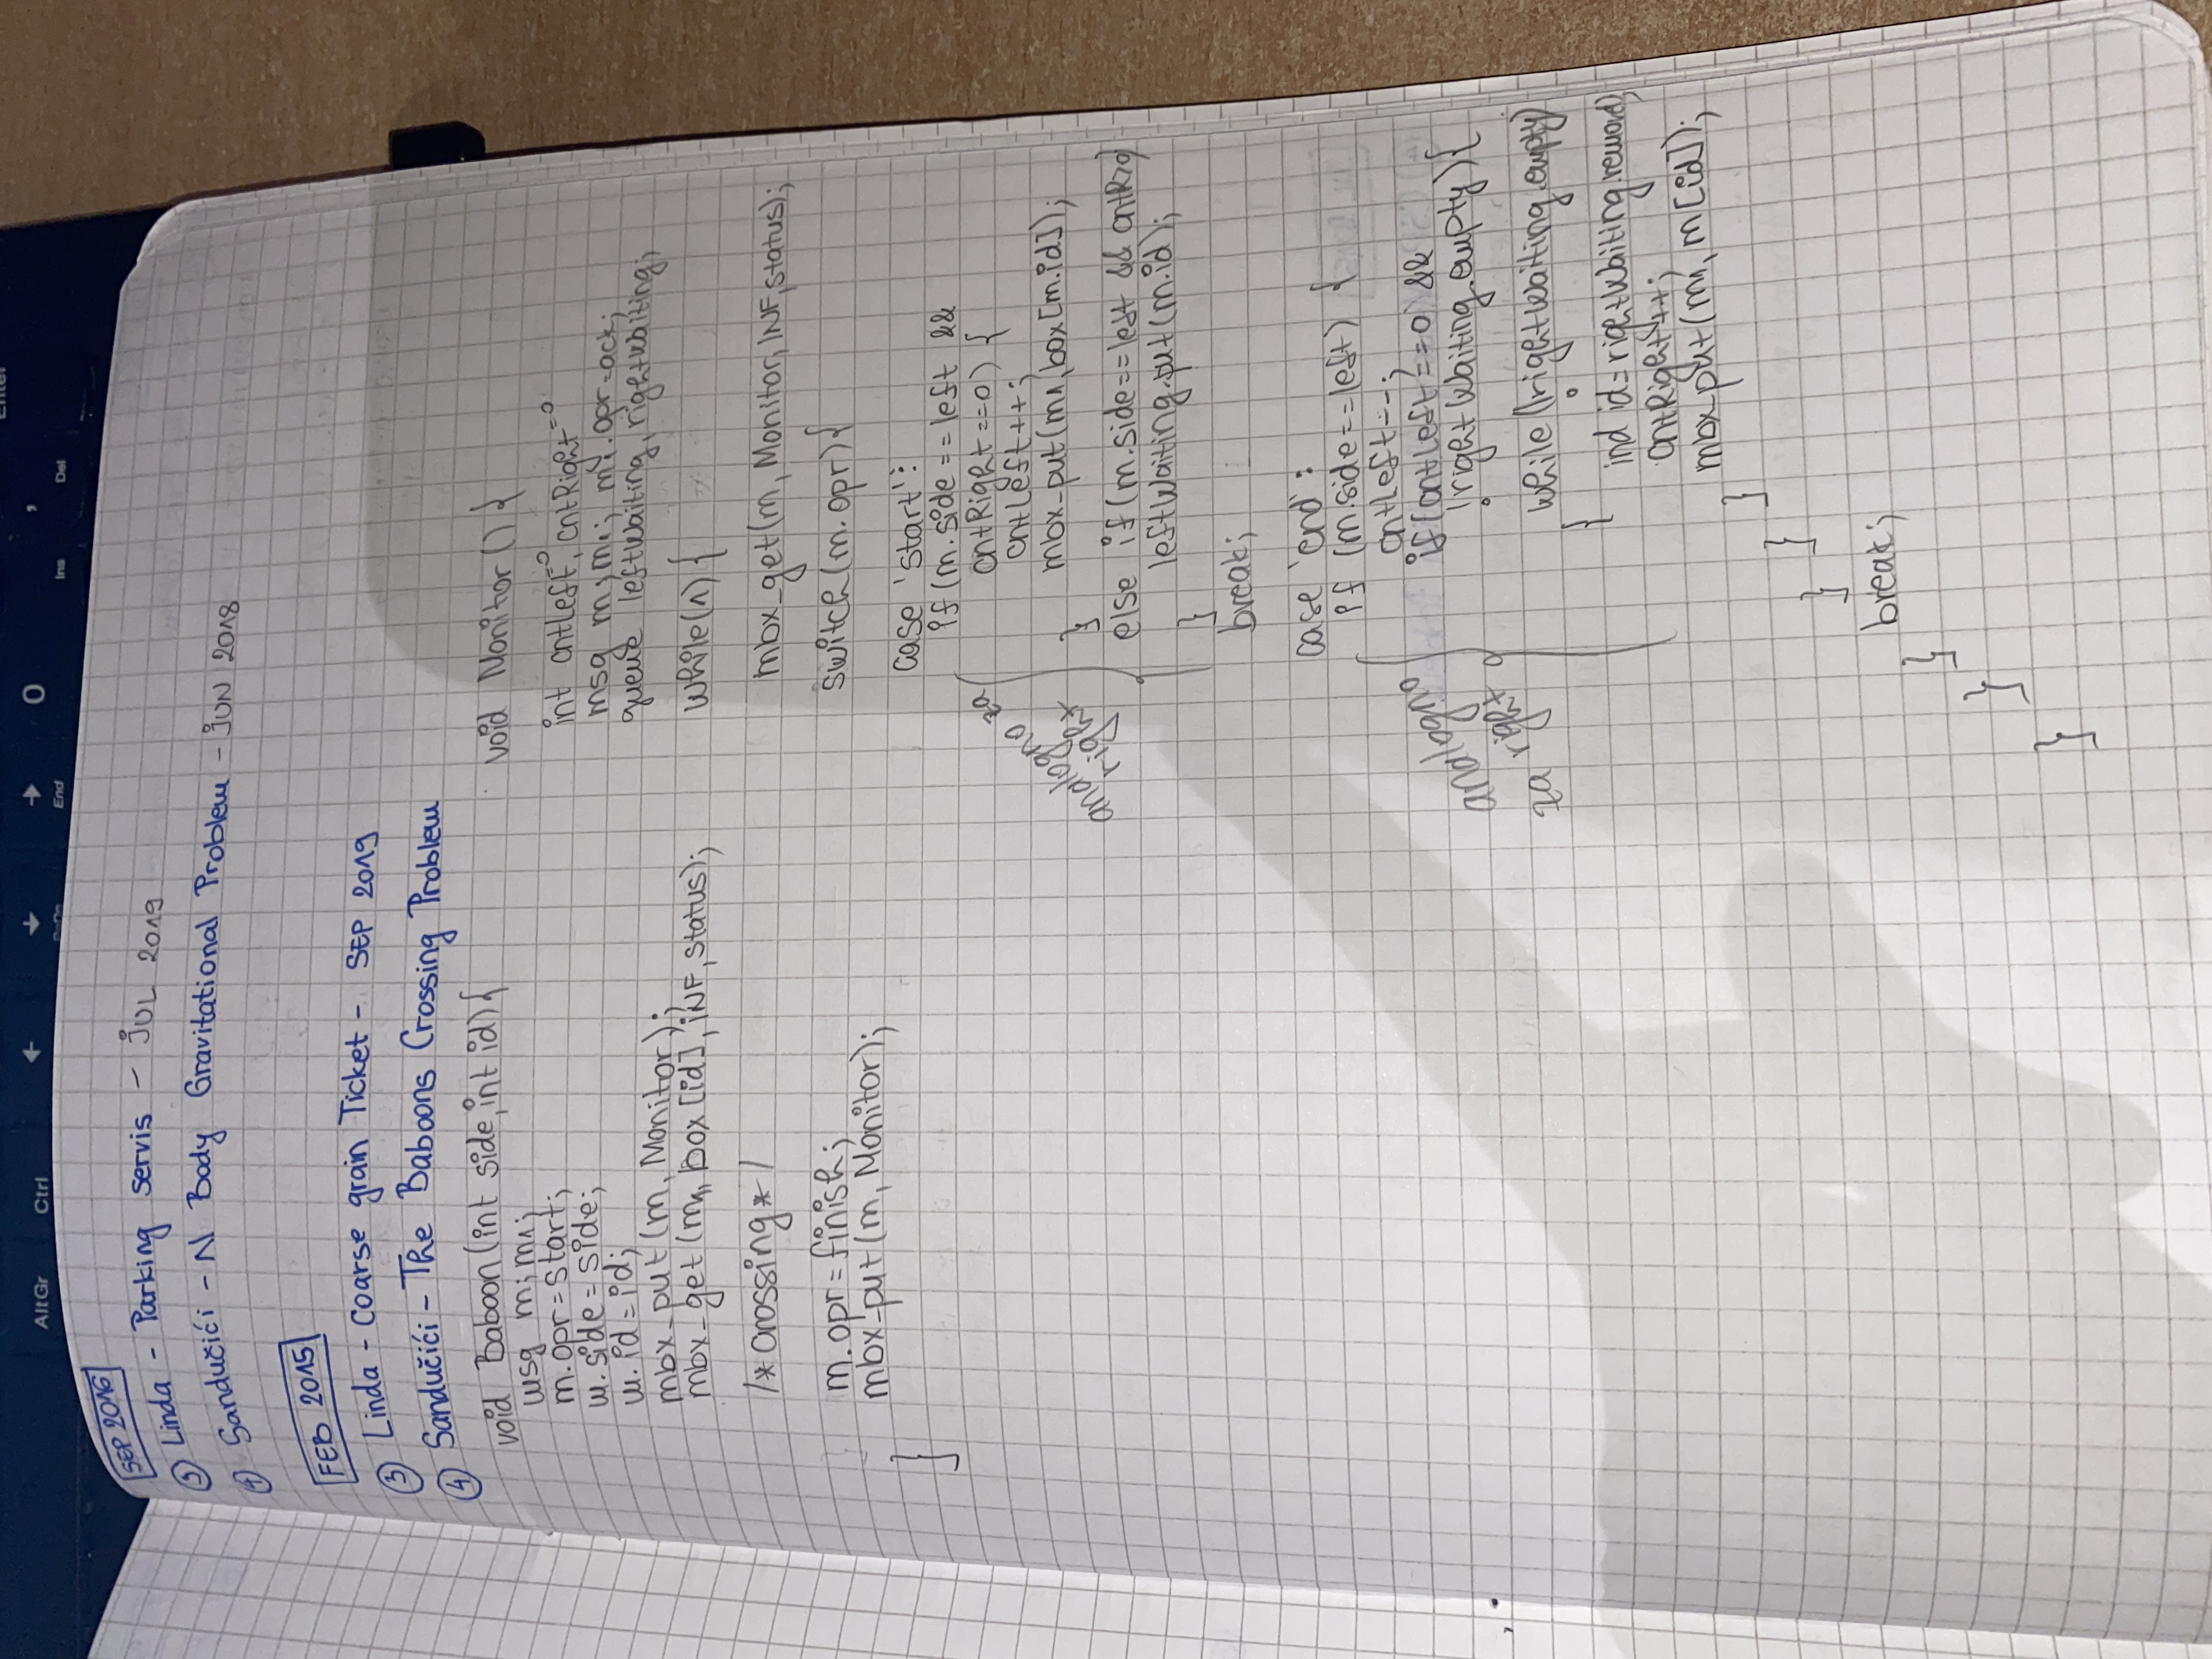 AltGr Ctrl ← ↓ → 0 ,
End Ins Del
SEP 2016
③ Linda - Parking servis - JUL 2019
④ Sandučići - N Body Gravitational Problem - JUN 2018
FEB 2015
③ Linda - Coarse grain Ticket - SEP 2019
④ Sandučići - The Baboons Crossing Problem
void Baboon(int side, int id){
msg m; m1;
m.opr = start;
m.side = side;
m.id = id;
mbx_put(m, Monitor);
mbx_get(m1, box[id], INF, status);
/* crossing */
m.opr = finish;
mbx_put(m, Monitor);
}
void Monitor() {
int cntLeft=0, cntRight=0
msg m; m1; m1.opr=ack;
queue leftWaiting, rightWaiting;
while(1) {
mbx_get(m, Monitor, INF, status);
switch(m.opr){
case 'start':
if(m.side == left &&
cntRight == 0) {
cntLeft++;
mbx_put(m1, box[m.id]);
}
else if(m.side == left && cntR>0)
leftWaiting.put(m.id);
}
analogno za
right
break;
case 'end':
if (m.side == left) {
cntLeft--;
if(cntLeft == 0 &&
!rightWaiting.empty){
while(!rightWaiting.empty)
{
ind id = rightWaiting.remove();
cntRight++;
mbx_put(m1, m[id]);
}
}
}
analogno
za right
break;
}
}
}